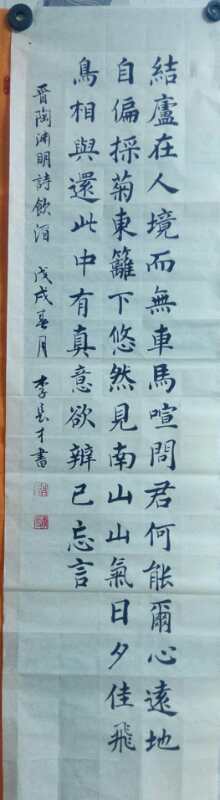 結廬在人境而無車馬喧問君何能爾心遠地
自偏採菊東籬下悠然見南山山氣日夕佳飛
鳥相與還此中有真意欲辯已忘言
晋陶渊明詩飲酒 戊戌春月 李長才書